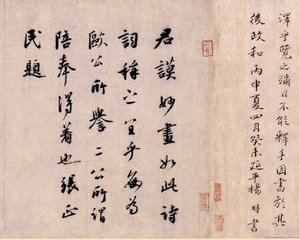 澤乎覽之彌日不能釋手因書於其
後政和丙申夏四月癸未延平楊時書
君謨妙畫如此詩
詞稱之宜乎每為
歐公所譽二公所謂
陪奉得着也張正
民題